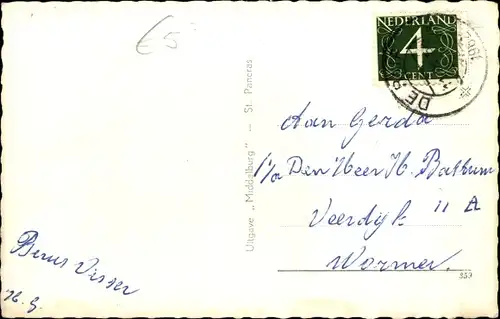 €5
NEDERLAND
4
CENT
DE
1962
Uitgave „Middelburg” — St. Pancras
Aan Gerda
p/a Den Heer H. Bakkum
Veerdijk 11 A
Wormer.
Visser
359